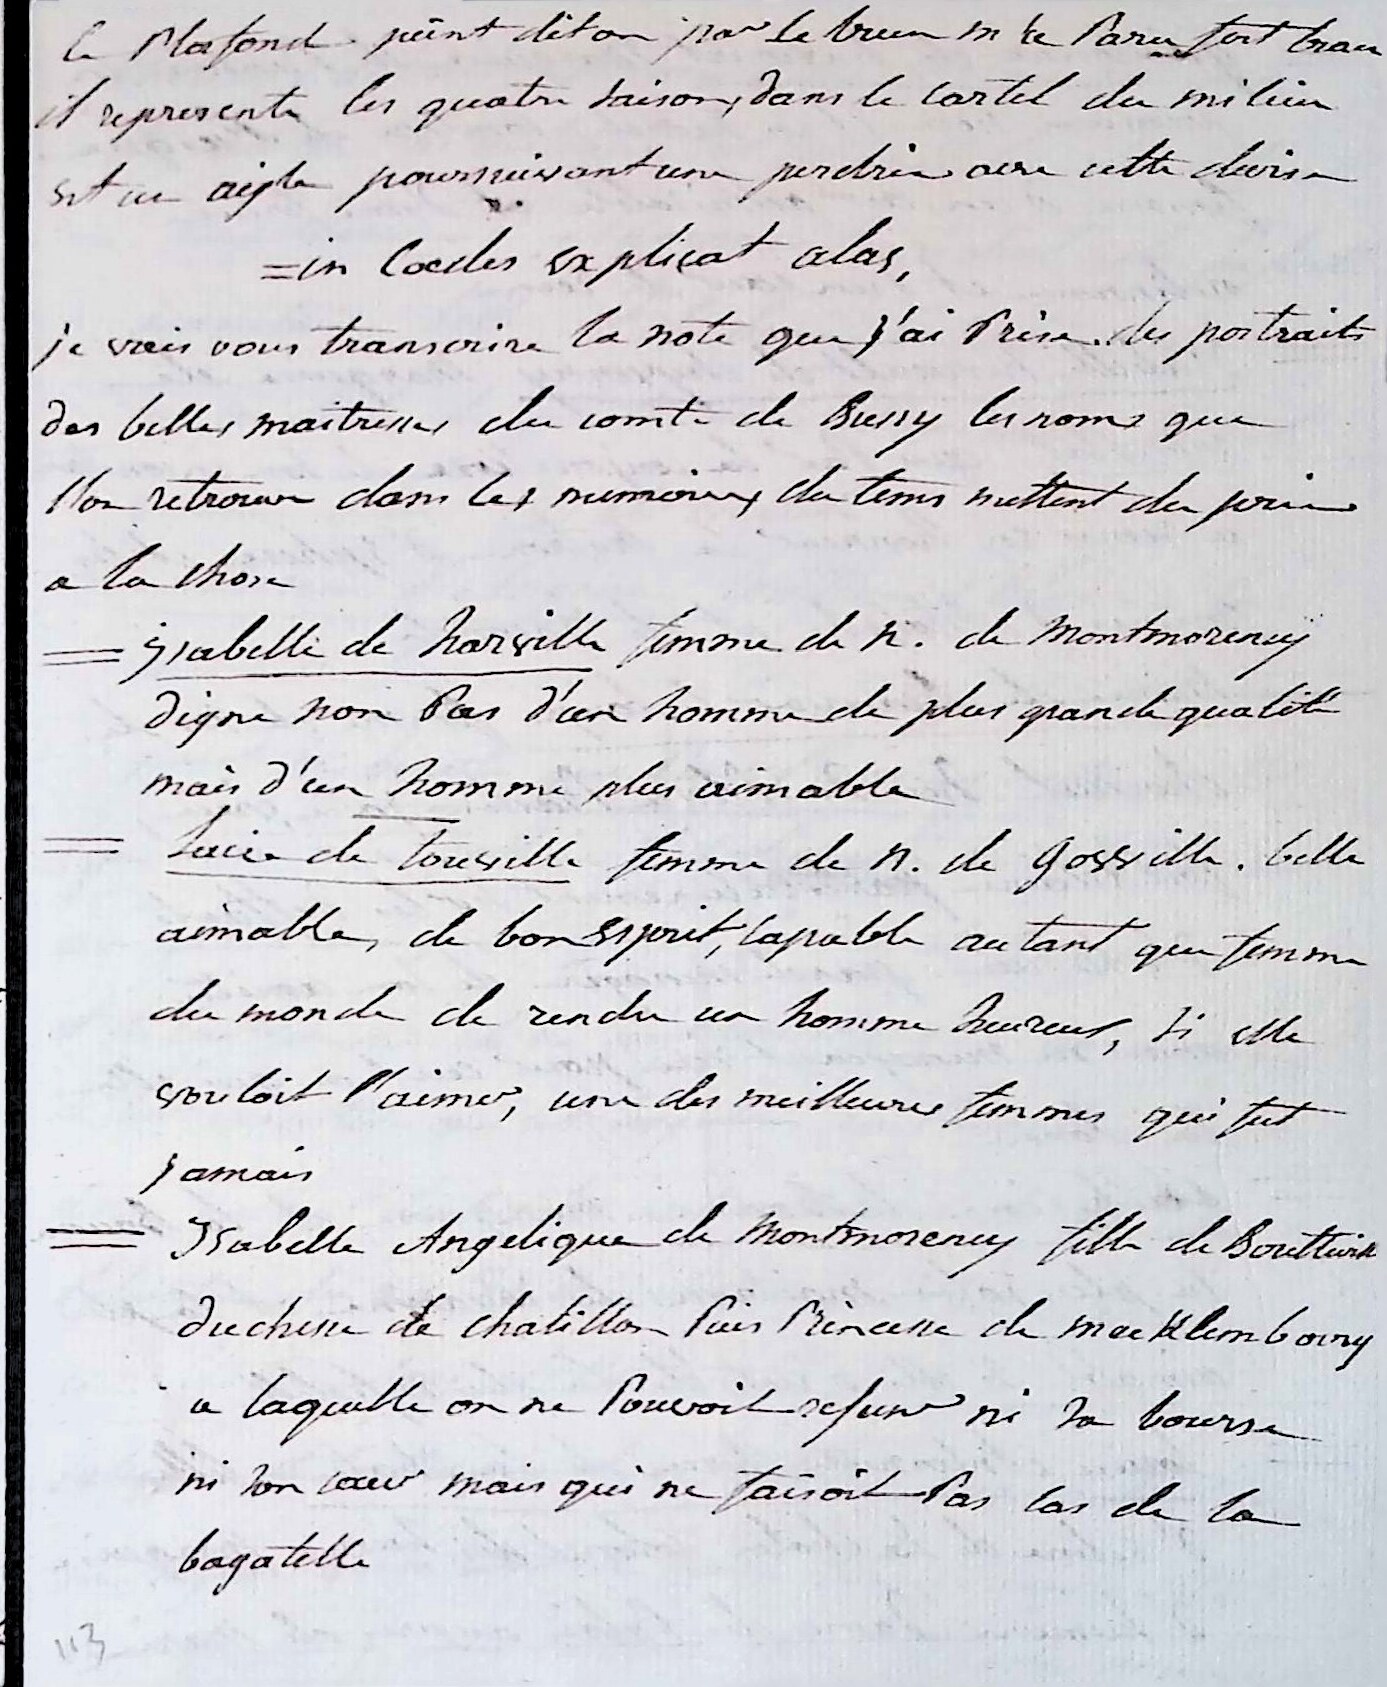 le Plafond peint dit on par Le brun m'a Paru fort beau
il represente les quatre saisons, dans le cartel du milieu
est un aigle poursuivant une perdrix avec cette devise
=in Coedes explicat alas,
je vais vous transcrire la note que j'ai Prise des portraits
des belles maitresses du comte de Bussy les noms que
l'on retrouve dans les memoires du tems mettent du prix
a la chose
= ysabelle de harville femme de n. de Montmorency
digne non Pas d'un homme de plus grande qualité
mais d'un homme plus aimable
= Lucie de tourville femme de n. de gosville. belle
aimable, de bon Esprit, capable autant que femme
du monde de rendre un homme heureux, si elle
vouloit l'aimer, une des meilleures femmes qui fut
jamais
= Ysabelle Angelique de Montmorency fille de Boutteville
duchesse de chatillon Puis Princesse de mecklembourg
a laquelle on ne Pouvoit refuser ni sa bourse
ni son cœur mais qui ne faisoit Pas cas de la
bagatelle
113